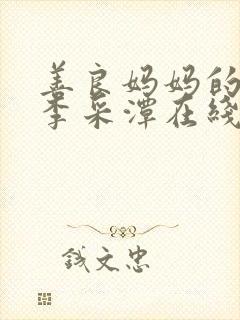 善良妈妈的
李采潭在线
钱文忠